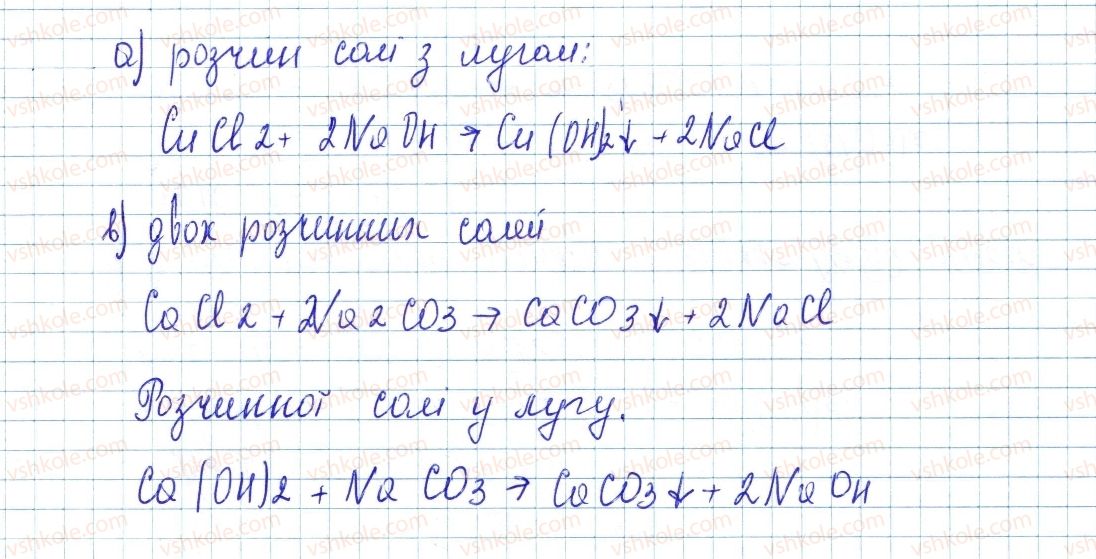 а) розчин солі з лугом:
CuCl2 + 2NaOH → Cu(OH)2↓ + 2NaCl
в) двох розчинних солей
CaCl2 + Na2CO3 → CaCO3↓ + 2NaCl
Розчинної солі у лугу.
Ca(OH)2 + NaCO3 → CaCO3↓ + 2NaOH
vshkole.com